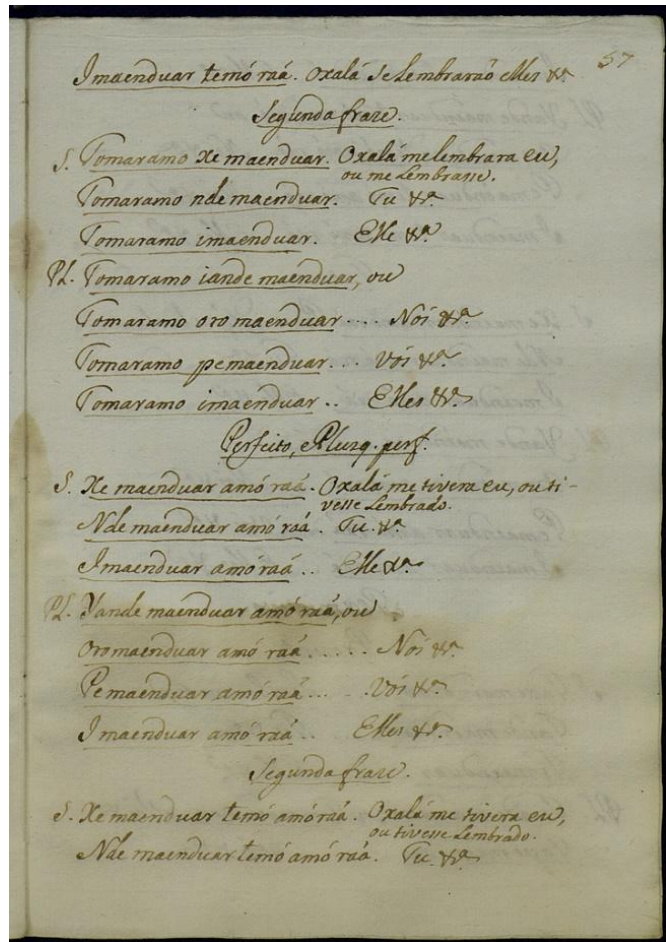 57
Imaenduar temó raá. Oxalá se lembraraó elles &ª.
Segunda fraze.
S. Tomaramo Xe maenduar. Oxalá me lembrara eu,
ou me Lembrasse.
Tomaramo nde maenduar. Tu &ª.
Tomaramo imaenduar. Elle &ª.
Pl. Tomaramo iande maenduar, ou
Tomaramo oro maenduar.... Nós &ª.
Tomaramo pemaenduar... vós &ª.
Tomaramo imaenduar.. Elles &ª.
Perfeito, e Plusq. perf.
S. Xe maenduar amó raá. Oxalá me tivera eu, ou ti-
vesse Lembrado.
Nde maenduar amó raá. Tu. &ª.
Imaenduar amó raá.. Elle &ª.
Pl. Yande maenduar amó raá, ou
Oro maenduar amó raá..... Nós &ª.
Pe maenduar amó raá.... Vós &ª.
Imaenduar amó raá.. Elles &ª.
Segunda fraze.
S. Xe maenduar temó amó raá. Oxalá me tivera eu,
ou tivesse Lembrado.
Nde maenduar temó amó raá. Tu. &ª.